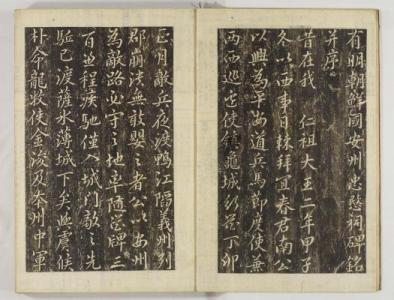 有明朝鮮國安州忠愍祠碑銘
并序
昔在我 仁祖大王二年甲子
冬以西事日棘拜宜春君南公
以興為平安道兵馬節度使兼
西巡邊使鎮龜城丁卯
正月敵兵夜渡鴨江陷義州列
郡崩潰無敢嬰之者公以安州
為敵路必守之地率隨營牌三
百並程疾馳僅入城門敵之先
駈已渡薩水薄城下矣虞候
朴命龍牧使金浚及本州中軍